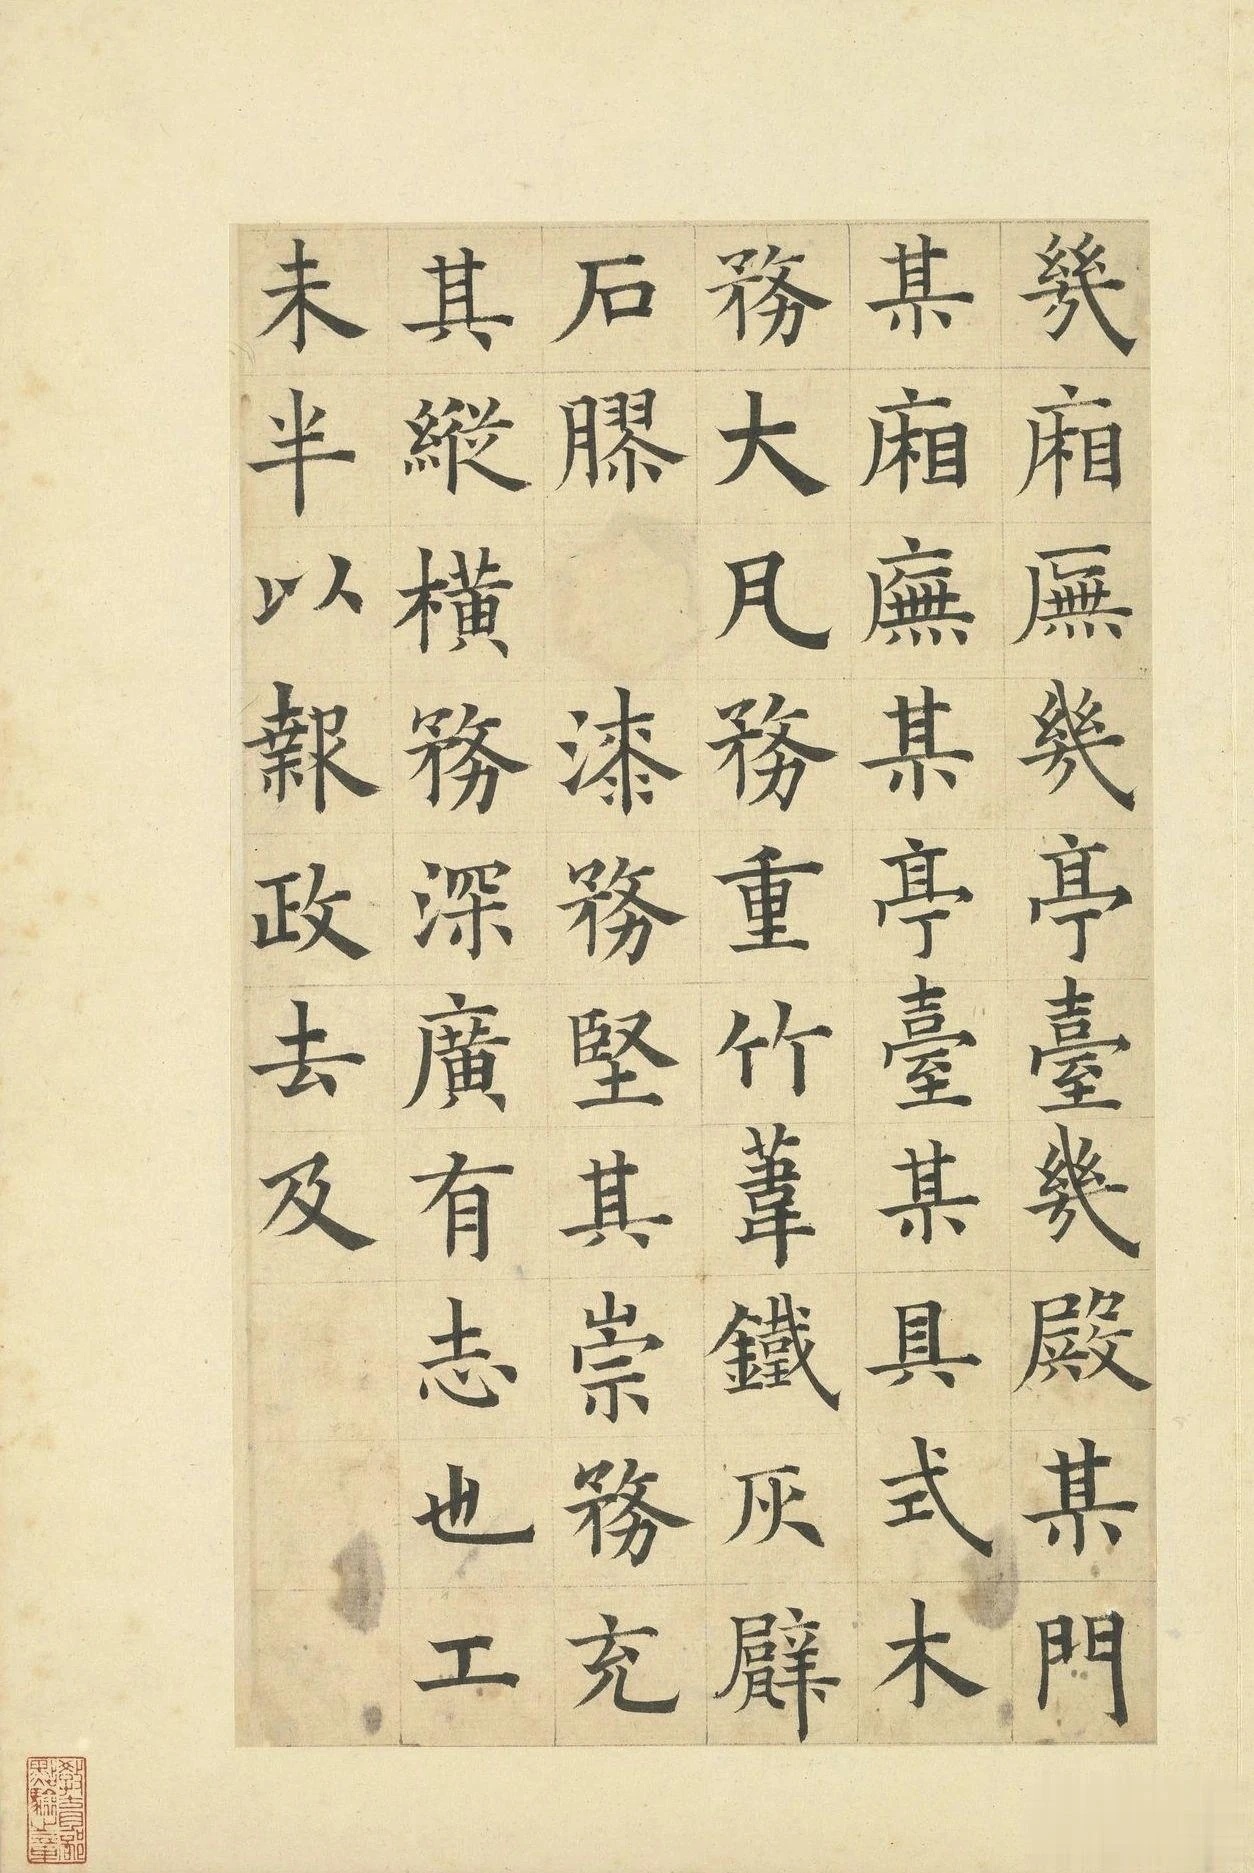 幾廂廡幾亭臺幾殿某門
某廂廡某亭臺某具式木
務大凡務重竹葦鐵灰甓
石膠漆務堅其崇務充
其縱橫務深廣有志也工
未半以報政去及
教育部點驗之章